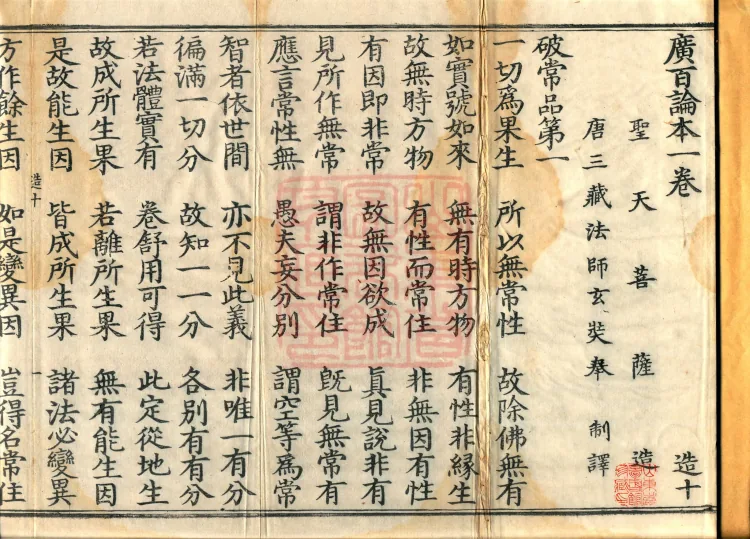 廣百論本一卷 造十
聖天菩薩造
唐三藏法師玄奘奉 制譯
破常品第一
一切爲果生 所以無常性 故除佛無有
如實號如來 無有時方物 有性非緣生
故無時方物 有性而常住 非無因有性
有因即非常 故無因欲成 眞見說非有
見所作無常 謂非作常住 旣見無常有
應言常性無 愚夫妄分別 謂空等爲常
智者依世間 亦不見此義 非唯一有分
徧滿一切分 故知一一分 各別有有分
若法體實有 卷舒用可得 此定從地生
故成所生果 若離所生果 無有能生因
是故能生因 皆成所生果 諸法必變異
造十 一
方作餘生因 如是變異因 豈得名常住